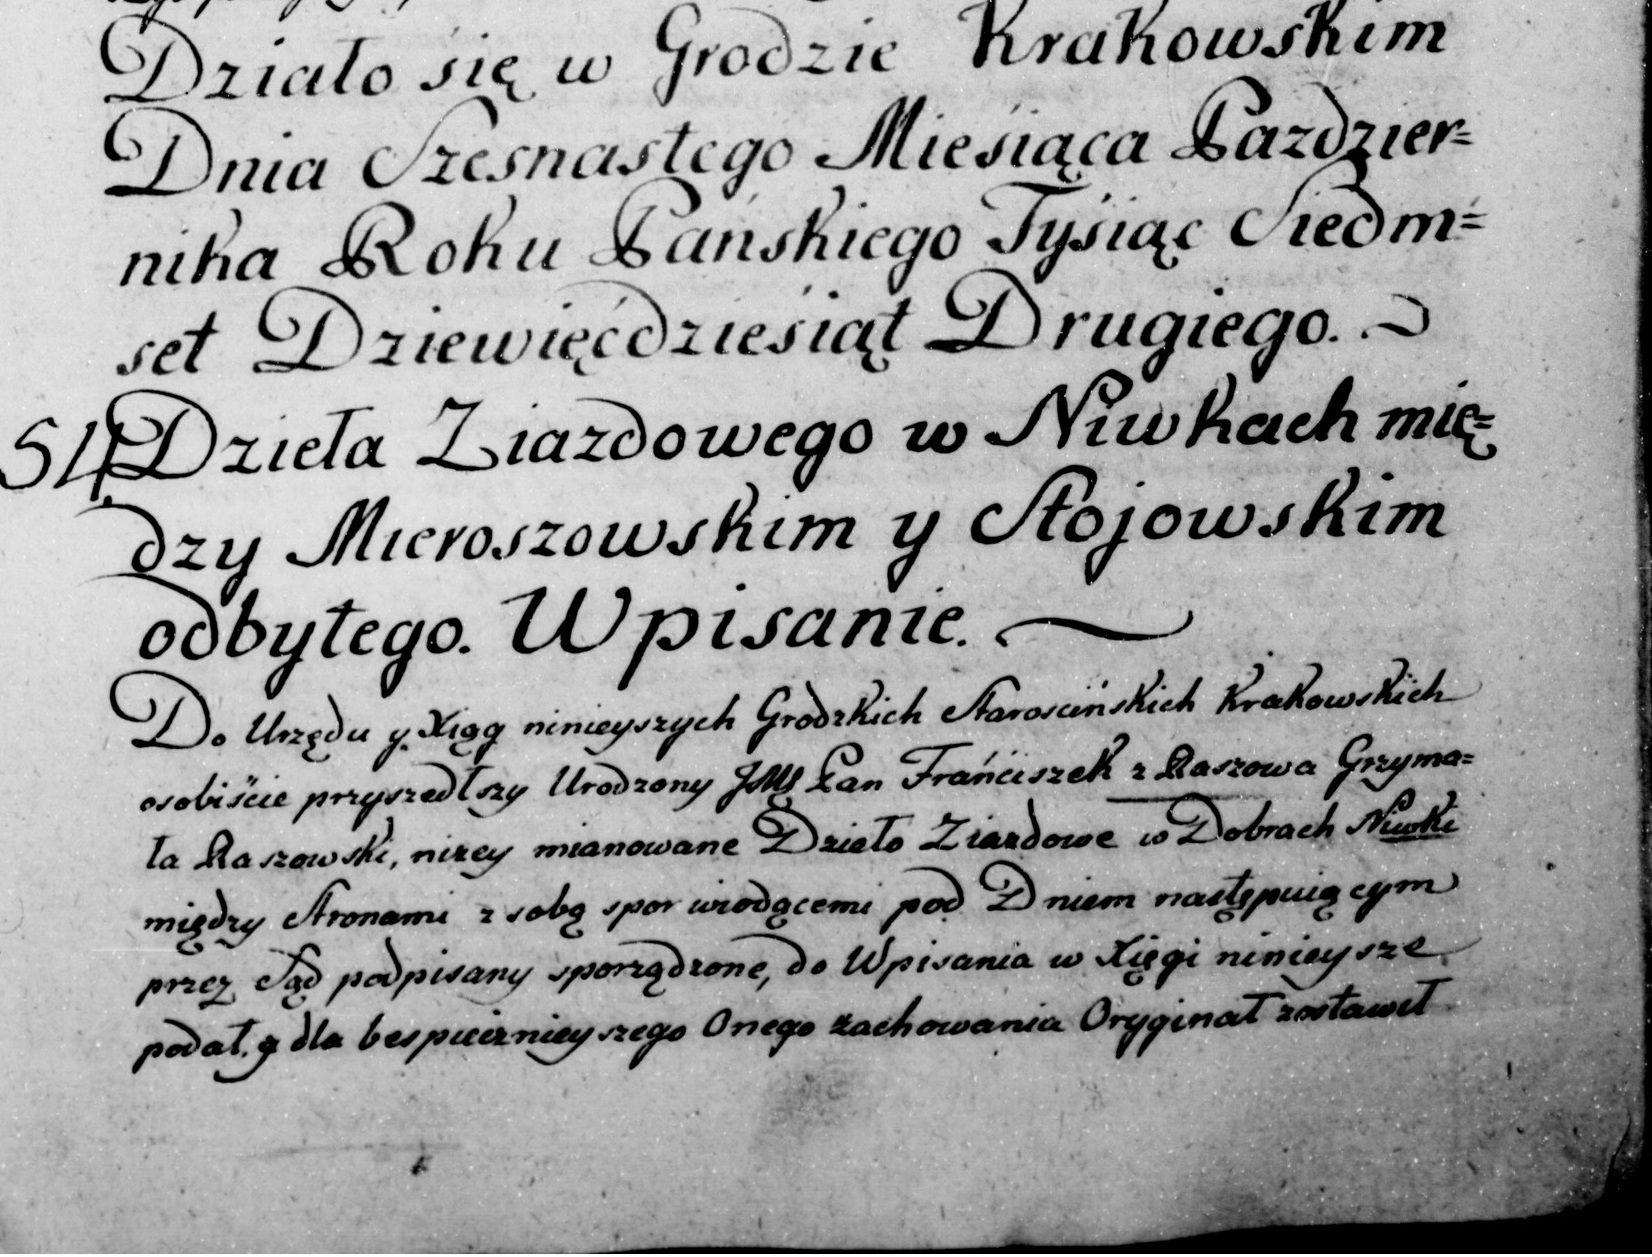 Działo się w Grodzie Krakowskim
Dnia Szesnastego Miesiąca Pazdzier=
nika Roku Pańskiego Tysiąc Siedm=
set Dziewięćdziesiąt Drugiego.
54 Dzieła Ziazdowego w Niwkach mię=
dzy Mieroszowskim y Stojowskim
odbytego. Wpisanie.
Do Urzędu y Xiąg ninieyszych Grodzkich Starościńskich Krakowskich
osobiście przyszedłszy Urodzony JMć Pan Frańciszek z Raszowa Grzyma=
ła Raszowski, niżey mianowane Dzieło Ziazdowe w Dobrach Niwki
między Stronami z sobą spor wiodącemi pod Dniem następuiącym
przez Sąd podpisany sporządzone, do Wpisania w Xięgi ninieysze
podał, y dla bespiecznieyszego Onego zachowania Oryginał zostawił